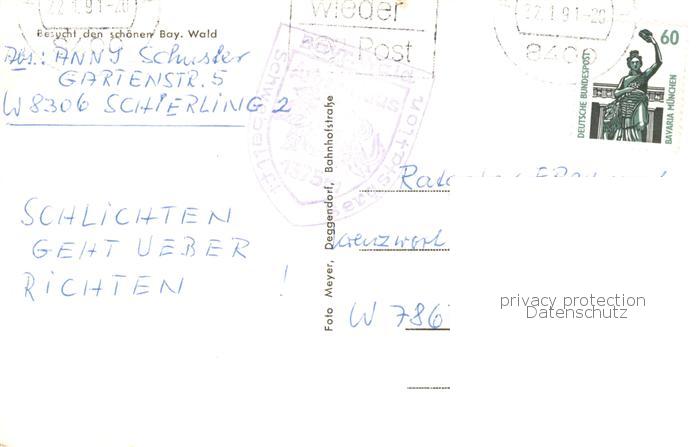 22.1.91-20
wieder
Post
22.1.91-20
8400
60
DEUTSCHE BUNDESPOST
BAVARIA MÜNCHEN
Besucht den schönen Bay. Wald
Abs.: ANNY Schuster
GARTENSTR. 5
W 8306 SCHIERLING 2
Foto Meyer, Deggendorf, Bahnhofstraße
SCHLICHTEN
GEHT UEBER
RICHTEN !
W 786
privacy protection
Datenschutz